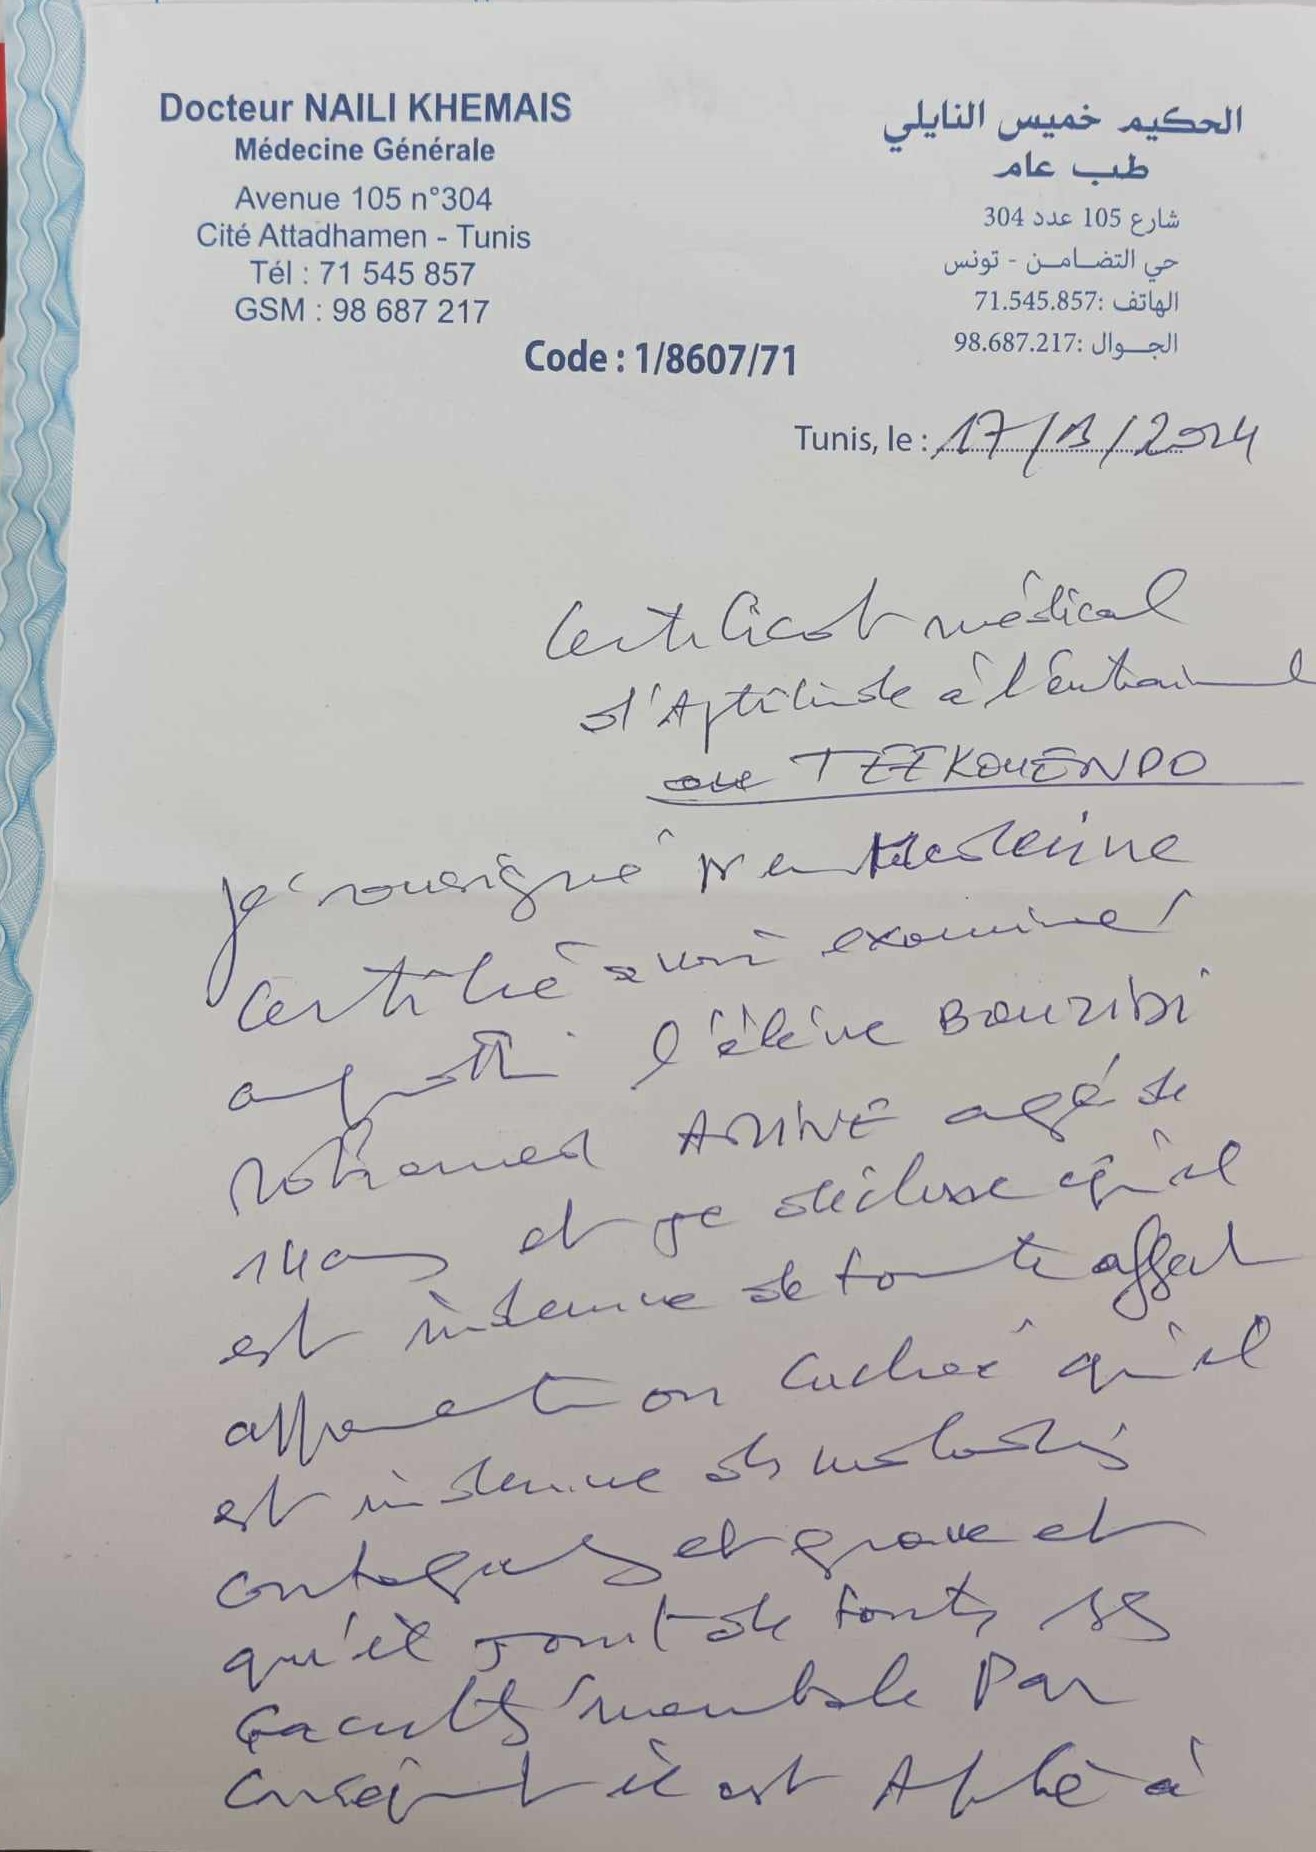 Docteur NAILI KHEMAIS
Médecine Générale
Avenue 105 n°304
Cité Attadhamen - Tunis
Tél : 71 545 857
GSM : 98 687 217
الحكيم خميس النايلي
طب عام
شارع 105 عدد 304
حي التضامن - تونس
الهاتف :71.545.857
الجوال :98.687.217
Code : 1/8607/71
Tunis, le : 17/ /2024
Certificat médical
d'Aptitude à l'entrainement
au TEEKOUENDO
je soussigné Dr en Medecine
Certifié avoir examiner
l'élève BOUZIDI
Mohamed AMINE agé de
14 ans et je déclare qu'il
est indemne de toute affect
apparente ou cachée qu'il
est indemne des maladies
contagieuses et grave et
qu'il jouit de toutes ses
facultés mentale Par
conséquent il est Apte à